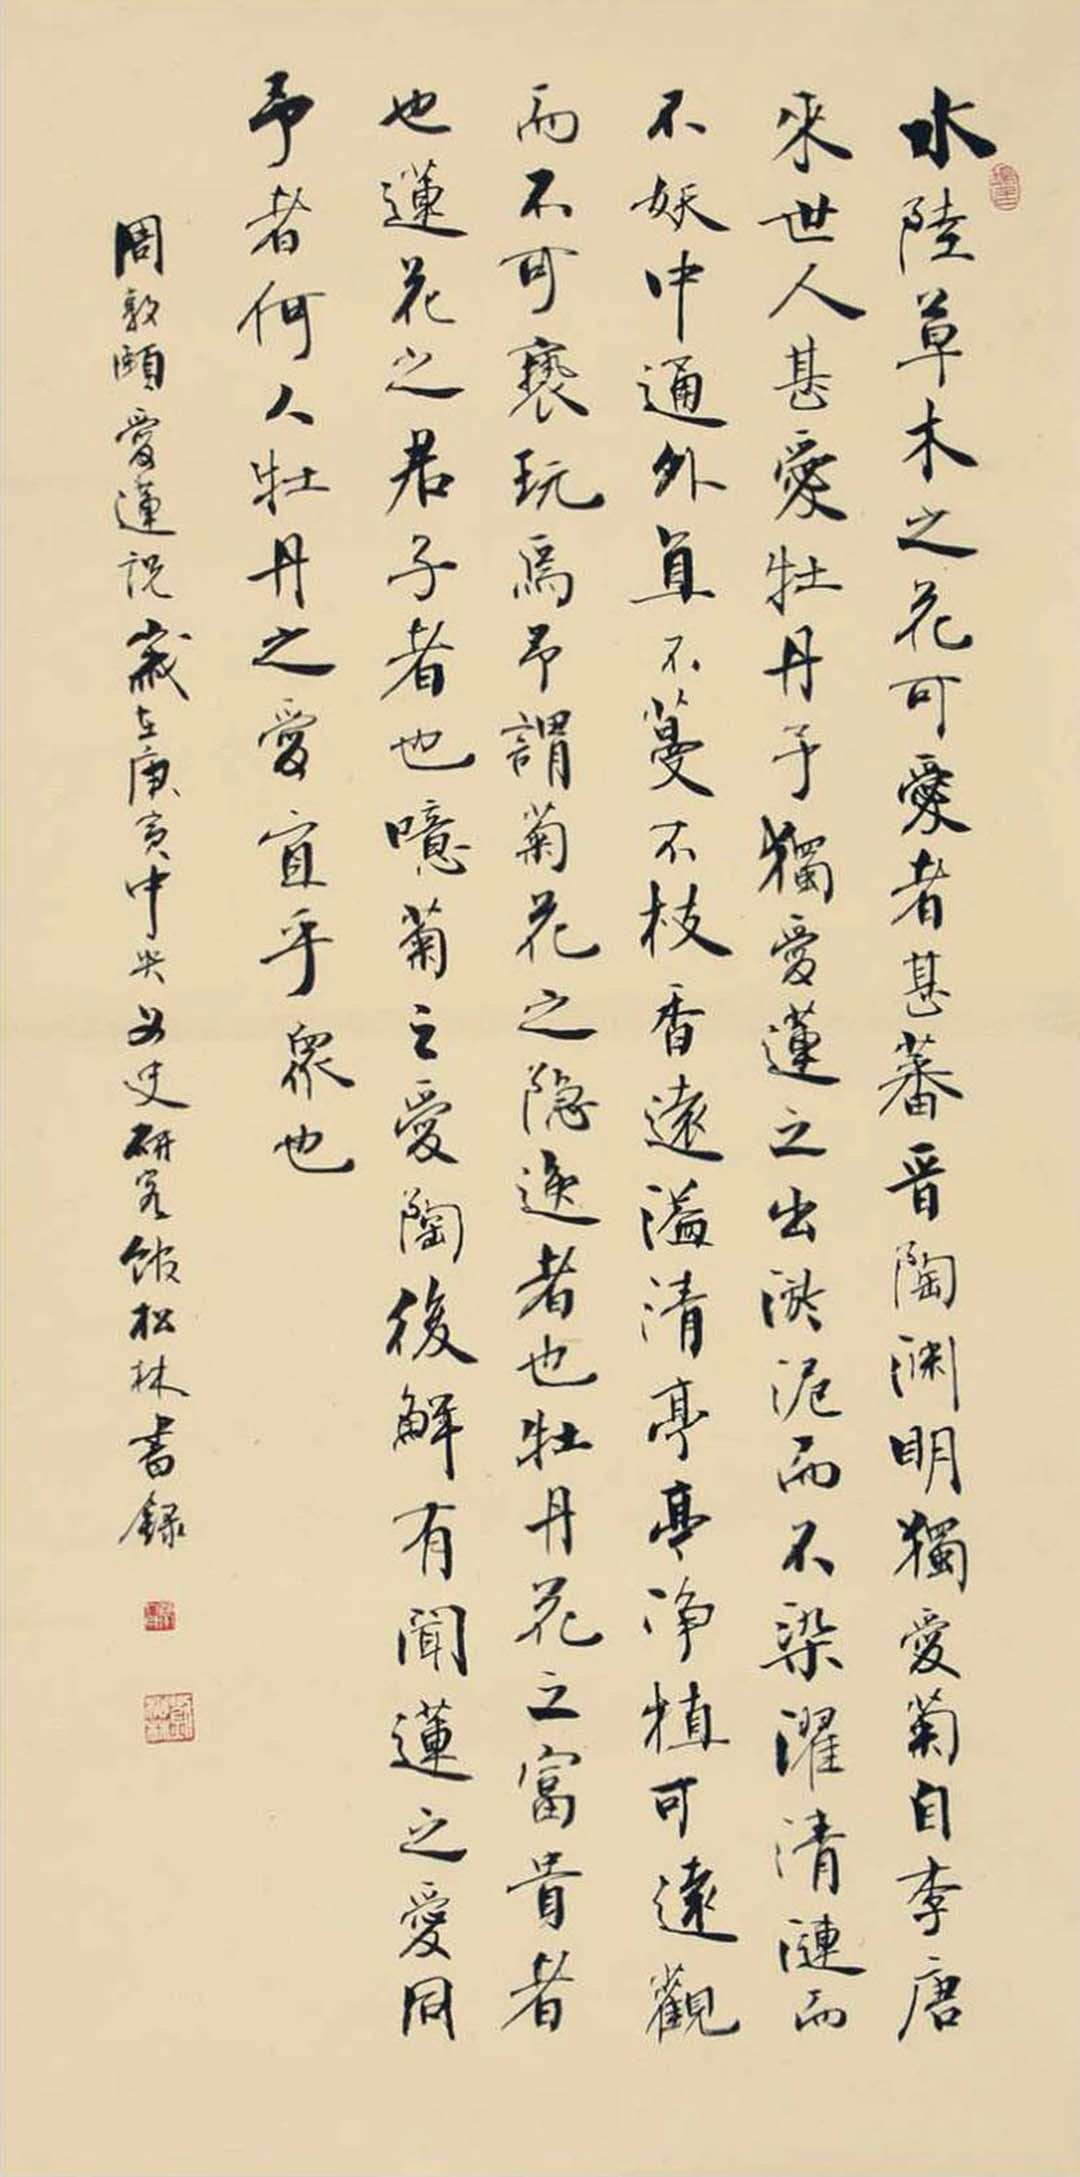 水陸草木之花可愛者甚蕃晉陶渊明獨愛菊自李唐
來世人甚愛牡丹予獨愛蓮之出淤泥而不染濯清漣而
不妖中通外直不蔓不枝香遠溢清亭亭净植可遠觀
而不可褻玩焉予謂菊花之隐逸者也牡丹花之富貴者
也蓮花之君子者也噫菊之愛陶後鮮有聞蓮之愛同
予者何人牡丹之愛宜乎眾也
周敦頤愛蓮説歲在庚寅中央文史研究館松林書録